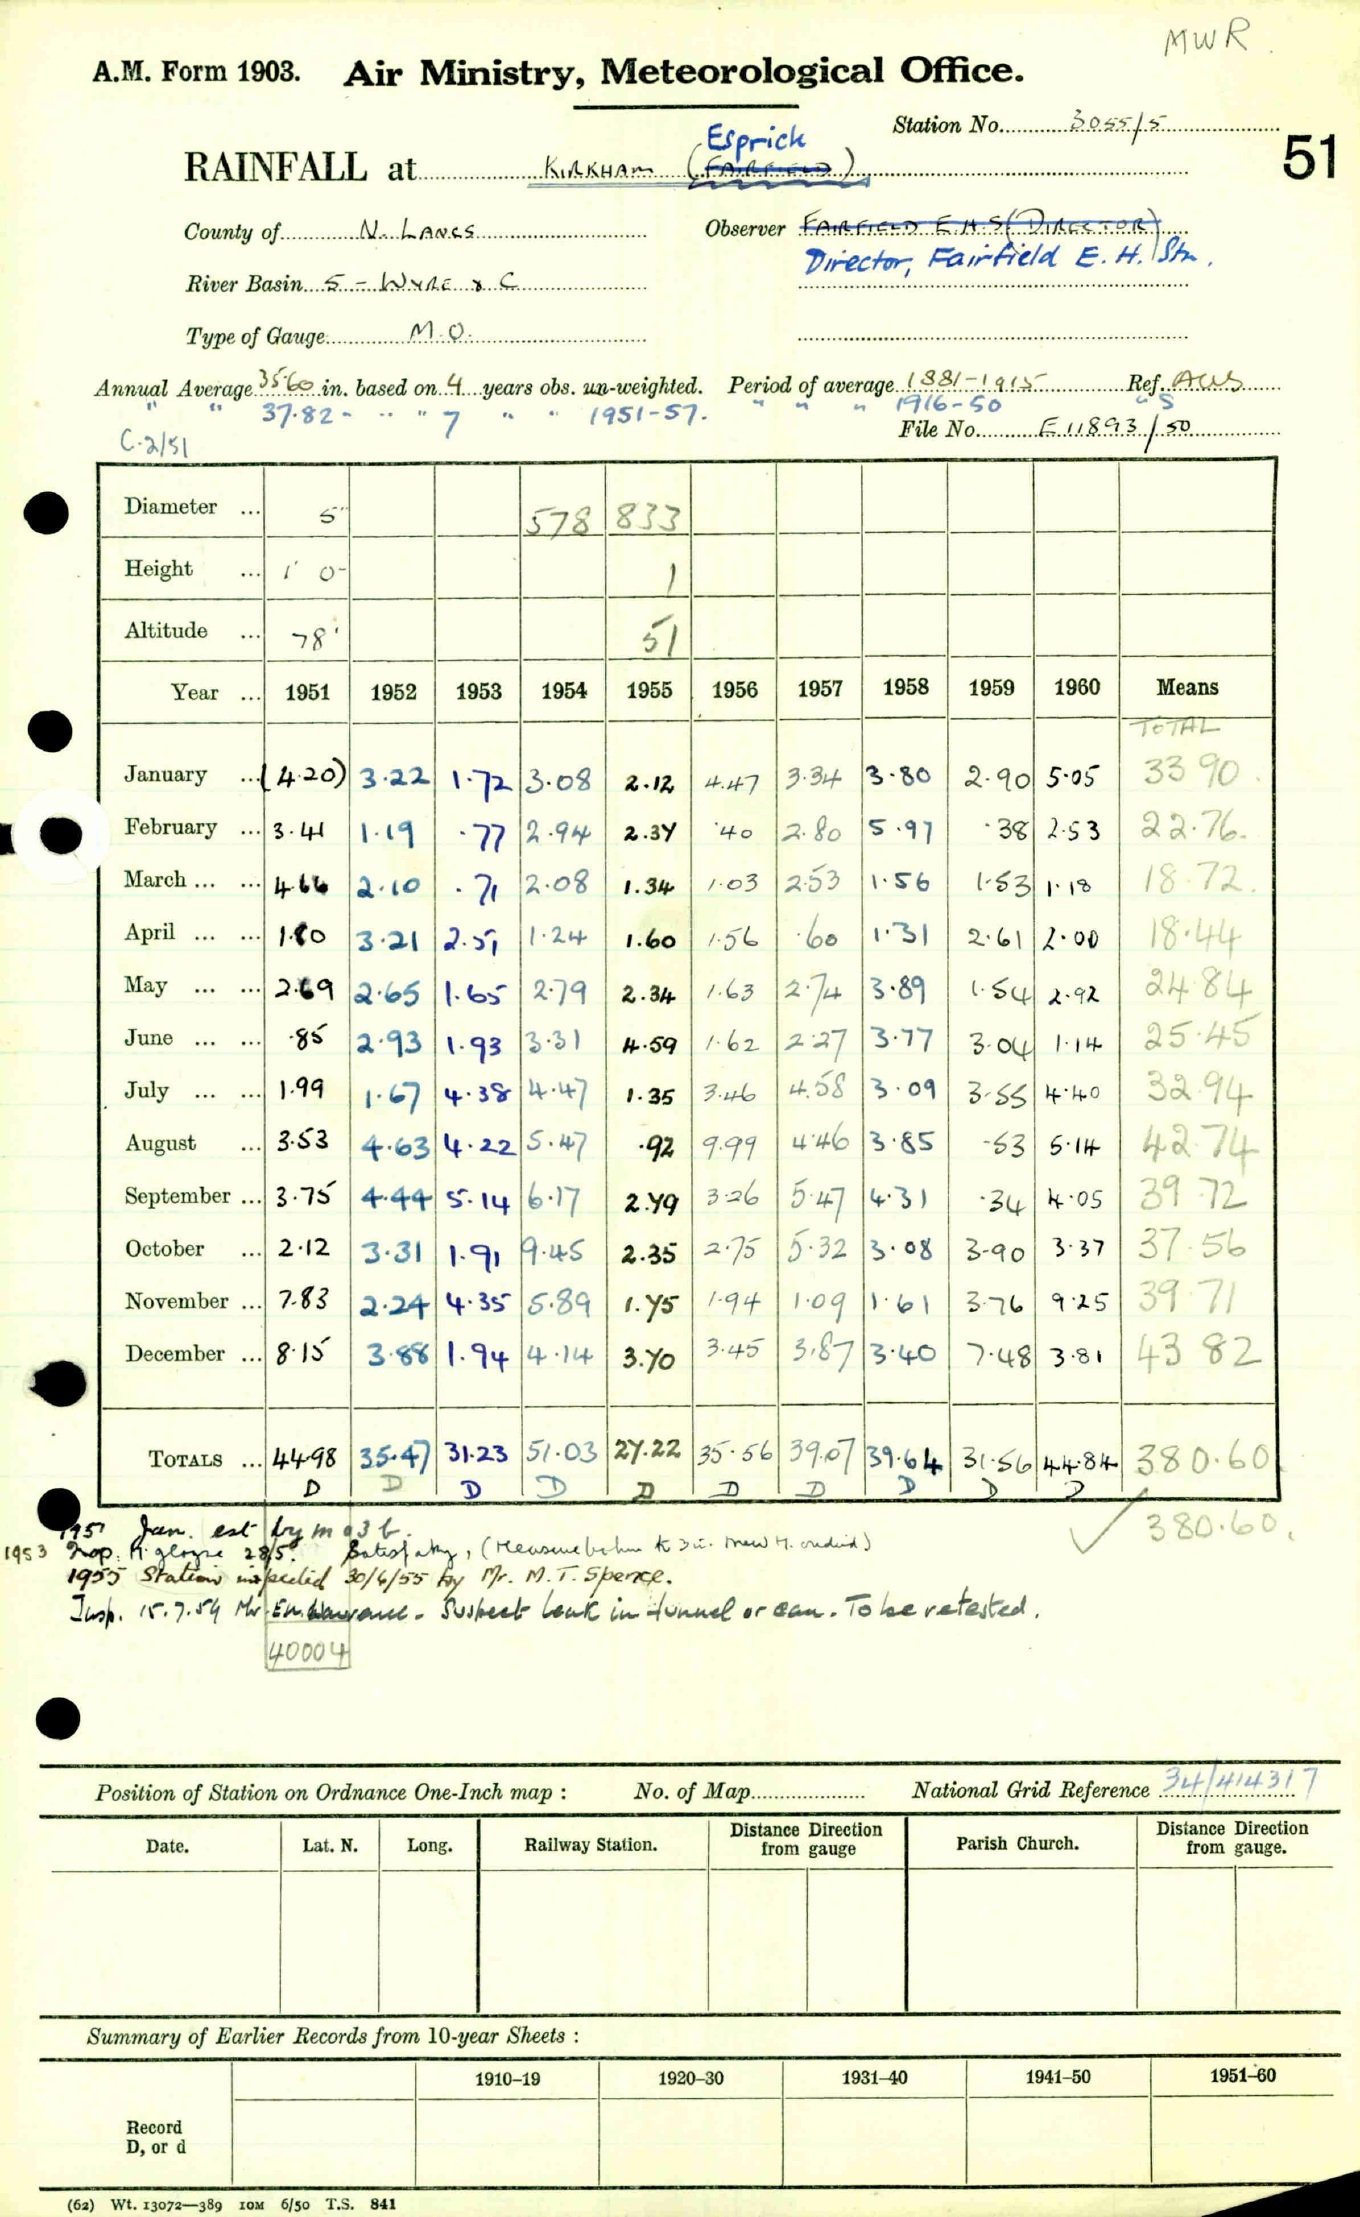 MWR
A.M. Form 1903. Air Ministry, Meteorological Office.
Station No. 3055/5
51
Esprick
RAINFALL at KIRKHAM (FAIRFIELD)
County of N. LANCS Observer FAIRFIELD E.H.S (DIRECTOR)
Director, Fairfield E. H. Stn.
River Basin 5 - WYRE & C
Type of Gauge M.O.
Annual Average 35.60 in. based on 4 years obs. un-weighted. Period of average 1881-1915 Ref. AWS
" " 37.82 - " " 7 " " 1951-57. " " " 1916-50 " S
File No. E 11893/50
C.2/51
Diameter ... 5" 578 833
Height ... 1' 0" 1
Altitude ... 78' 51
Year ... 1951 1952 1953 1954 1955 1956 1957 1958 1959 1960 Means
TOTAL
January ... (4.20) 3.22 1.72 3.08 2.12 4.47 3.34 3.80 2.90 5.05 33.90
February ... 3.41 1.19 .77 2.94 2.37 .40 2.80 5.97 .38 2.53 22.76
March ... ... 4.66 2.10 .71 2.08 1.34 1.03 2.53 1.56 1.53 1.18 18.72
April ... ... 1.80 3.21 2.51 1.24 1.60 1.56 .60 1.31 2.61 2.00 18.44
May ... ... 2.69 2.65 1.65 2.79 2.34 1.63 2.74 3.89 1.54 2.92 24.84
June ... ... .85 2.93 1.93 3.31 4.59 1.62 2.27 3.77 3.04 1.14 25.45
July ... ... 1.99 1.67 4.38 4.47 1.35 3.46 4.58 3.09 3.55 4.40 32.94
August ... 3.53 4.63 4.22 5.47 .92 9.99 4.46 3.85 .53 5.14 42.74
September ... 3.75 4.44 5.14 6.17 2.79 3.26 5.47 4.31 .34 4.05 39.72
October ... 2.12 3.31 1.91 9.45 2.35 2.75 5.32 3.08 3.90 3.37 37.56
November ... 7.83 2.24 4.35 5.89 1.75 1.94 1.09 1.61 3.76 9.25 39.71
December ... 8.15 3.88 1.94 4.14 3.70 3.45 3.87 3.40 7.48 3.81 43.82
TOTALS ... 44.98 35.47 31.23 51.03 27.22 35.56 39.07 39.64 31.56 44.84 380.60
D D D D D D D D D D
380.60.
1951 Jan. est by m o 3 b.
1953 28/5.
1955 Station inspected 30/6/55 by Mr. M. T. Spence.
Insp. 15.7.59 Mr. - Suspect leak in funnel or can. To be retested.
40004
Position of Station on Ordnance One-Inch map : No. of Map National Grid Reference 34/414317
Date. Lat. N. Long. Railway Station. Distance Direction from gauge Parish Church. Distance Direction from gauge.
Summary of Earlier Records from 10-year Sheets :
1910–19 1920–30 1931–40 1941–50 1951–60
Record
D, or d
(62) Wt. 13072—389 10M 6/50 T.S. 841